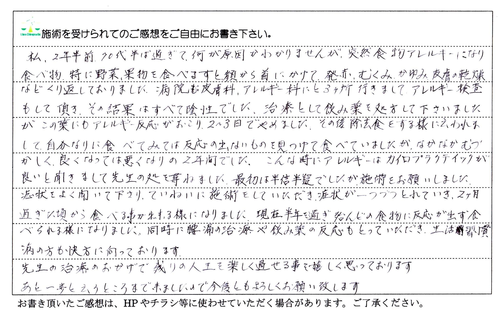 施術を受けられてのご感想をご自由にお書き下さい。
私、2年半前70代半ば過ぎて、何が原因かわかりませんが、突然食物アレルギーになり
食べ物、特に野菜、果物を食べますと頬から首にかけて、発赤、むくみ、かゆみ、皮膚の
などくり返しておりました。病院も皮膚科、アレルギー科にと3ヶ所行きましてアレルギー検査
もして頂き、その結果はすべて陰性でした。治療として飲み薬を処方して下さいました
が、この薬にもアレルギー反応がおこり、2〜3日でやめました。その後除去食をする様に云われま
して自分なりに食べてみては反応の出ないものを見つけて食べていましたが、なかなかむづ
かしく、良くなっては悪くなりの2年間でした。こんな時にアレルギーはカイロプラクティックが
良いと聞きまして先生の処を尋ねました。最初は半信半疑でしたが施術をお願いしました。
症状をよく聞いて下さり、ていねいに施術をしていただき、症状が一つづつとれていき、2ヶ月
過ぎた頃から食べる事が出来る様になりました。現在半年を過ぎほとんどの食物に反応が出ず食
べられる様になりました。同時に腰痛の治療や飲み薬の反応もとっていただき、
の方も快方に向っております
先生の治療のおかげで残りの人生を楽しく過せる事で嬉しく思っております
あと一歩と云うところまで来ましたので今後ともよろしくお願い致します
お書き頂いたご感想は、HPやチラシ等に使わせていただく場合があります。ご了承ください。